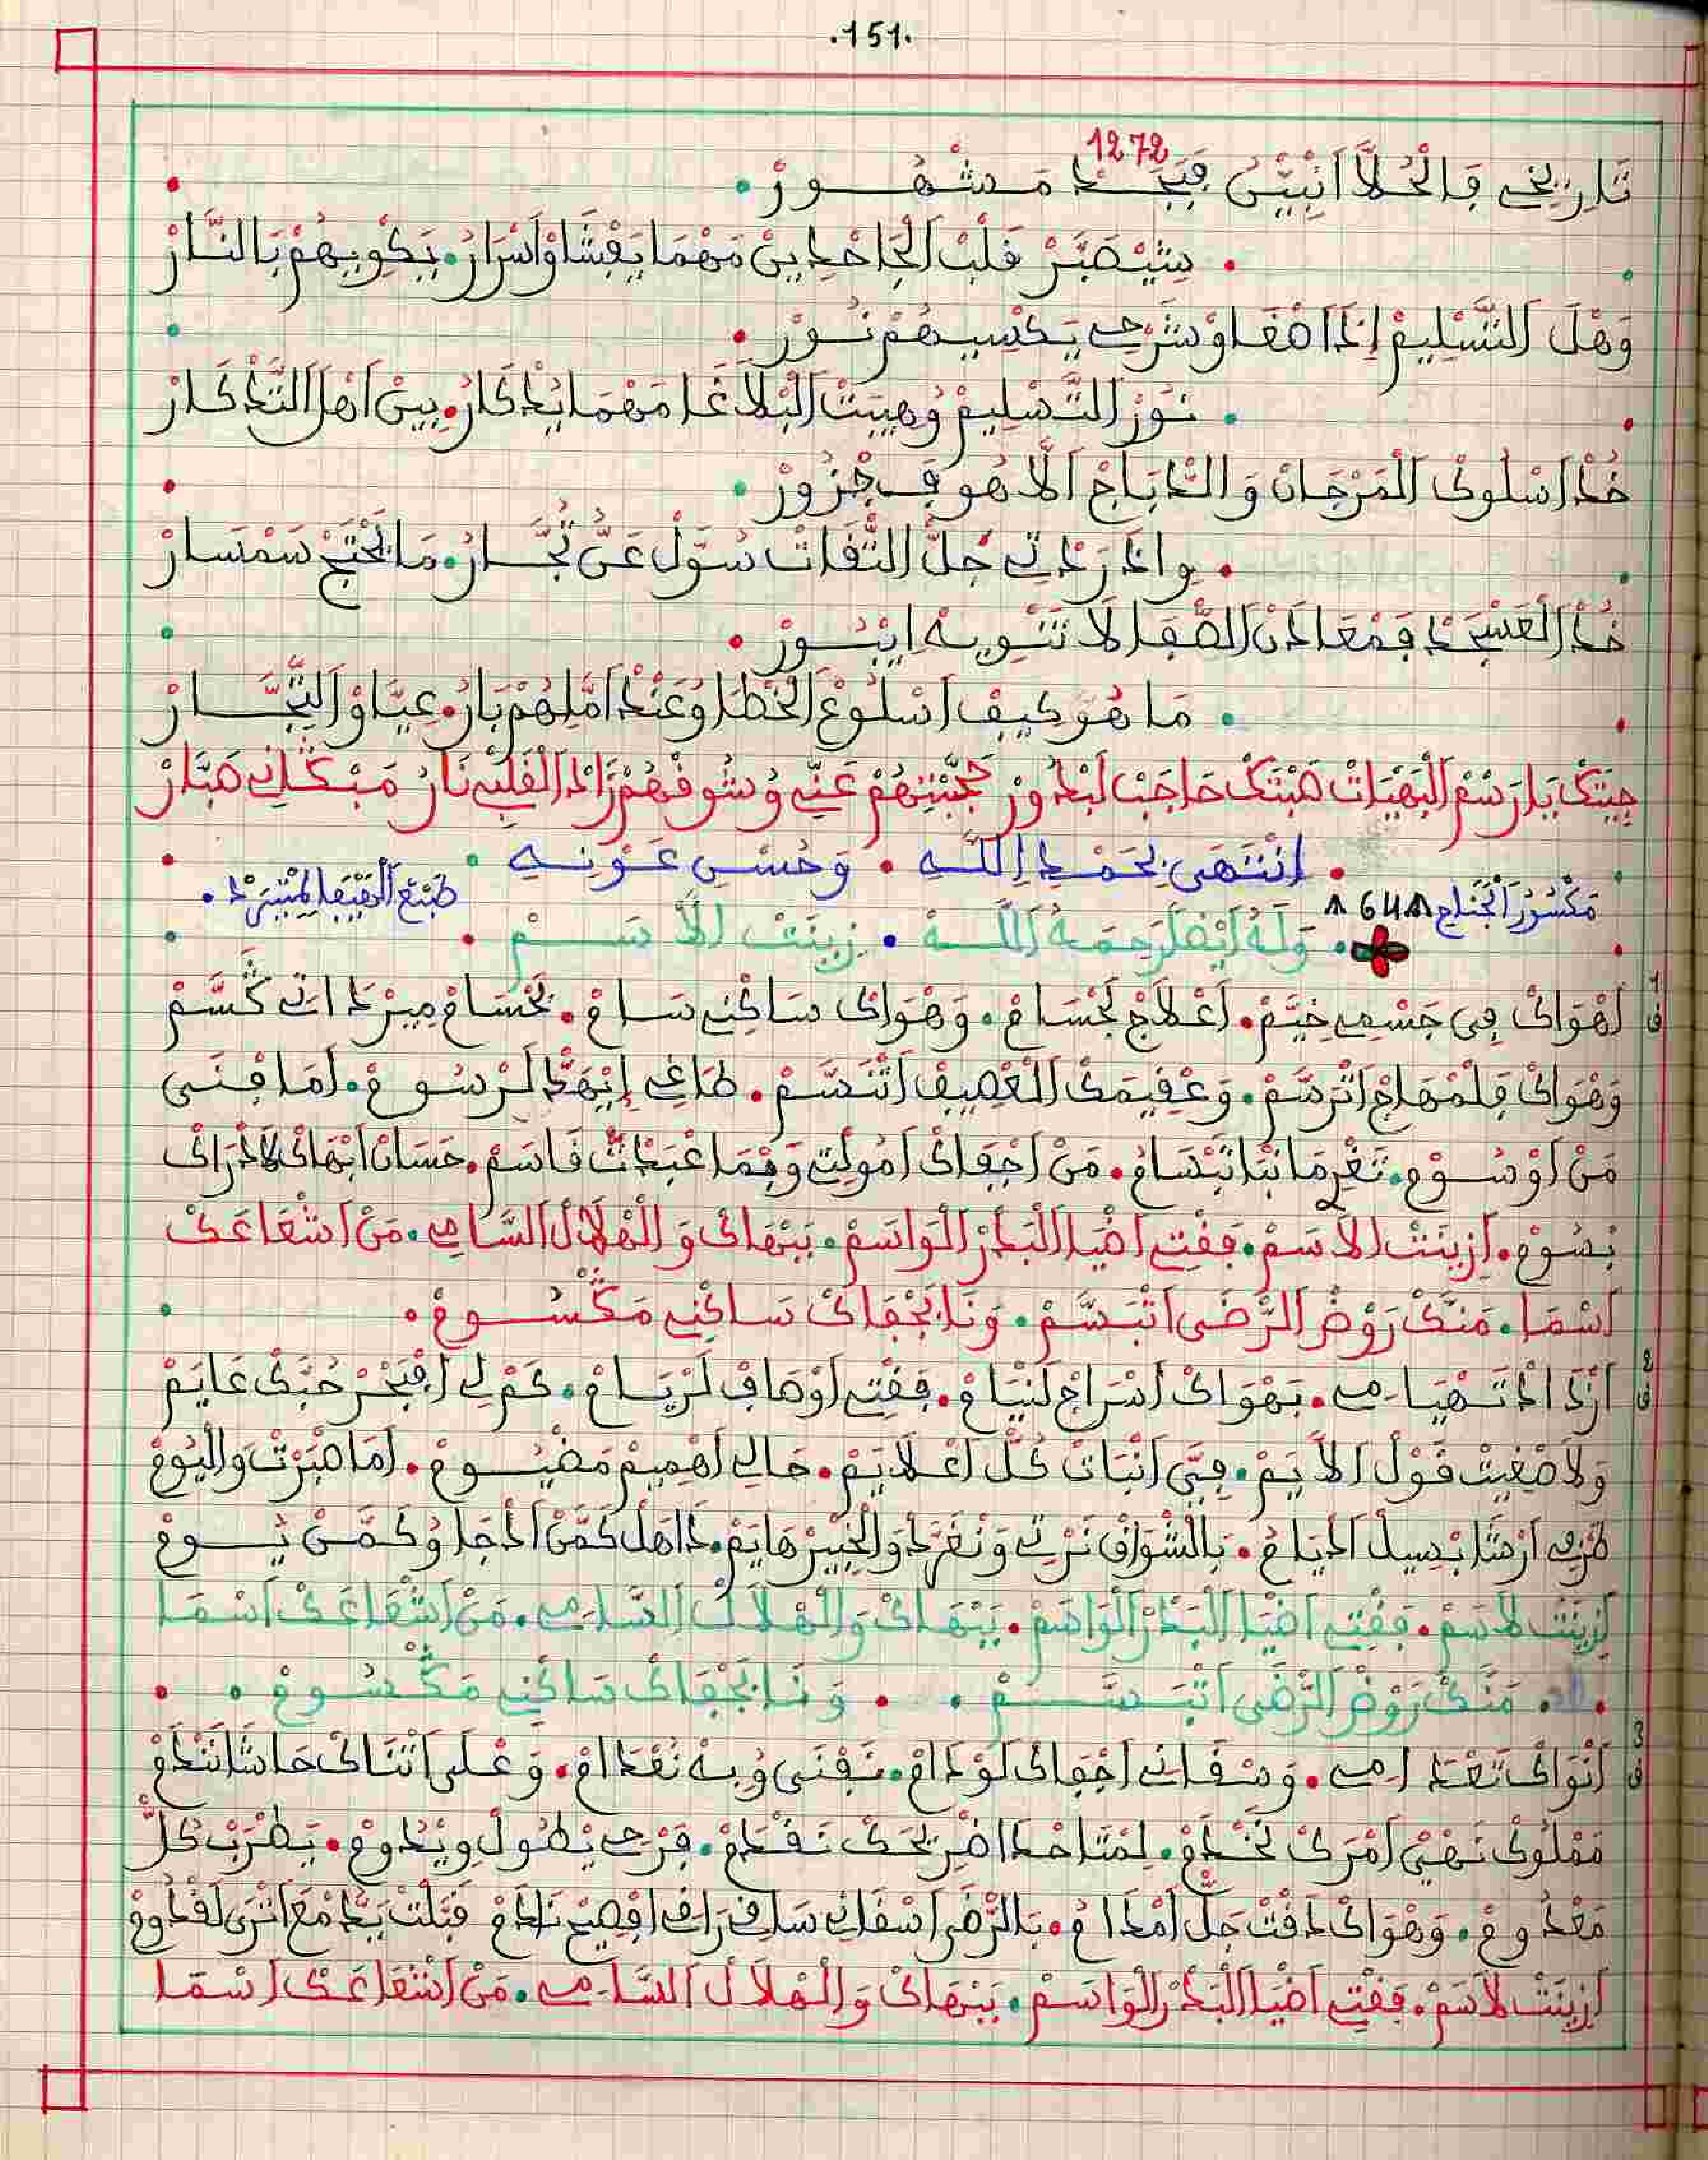 .151.
1272
تَارِيخِي فَالْحُلَّا انْبِيّنْ فَبْجَدْ مَشْهُورْ
سِيْصَبَّرْ قَلْبْ الْجَاحْدِينْ مَهْمَا يَفْشَاوْ اَسْرَارُ. يَكْوِيهُمْ بَالنَّارْ
وَهْلَ التَّسْلِيمْ إِذَا صْغَاوْ شَرْحِي يَكْسِيهُمْ نُورْ
نُورْ التَّسْلِيمْ وُهِيبَتْ الْبْلَاغَا مَهْمَا يُذْكَارُ. بِينْ اَهْلَ التَّذْكَارْ
خُذْ اسْلُوكْ الْمَرْجَانْ وَالدِّبَاجْ الَّا هُو فَجْزُورْ
وِإذَا رَدْتِي جُلّْ التّْقَاتْ سُوَّلْ عَنُّ تُجَّارُ. مَا يَحْتَجْ سَمْسَارْ
خُذْ الْعَسْجَدْ فَمْعَادَنْ الصّْفَا لَا تَنْوِيهْ ايْبُورْ
مَا هُوَ كِيفْ اسْلُوعْ الْخْطَا وُعَنْدْ امَّلِهُمْ بَارُ. عِيَّاوْ التُّجَّارْ
جِيتَكْ يَا رَسْمْ الْبَهْيَاتْ صَبْتَكْ حَاجَبْ لَبْدُورْ حْجَبْتِهُمْ عَنِّي وُشُوقْهُمْ زَادْ الْقَلْبِي نَارُ مَبْڭَانِي صَبَّارْ
إنْتَهَى بِحَمْدِ اللَّهِ. وَحُسْنِ عَوْنِهِ
مَكْسُورْ الْجْنَاحْ 64 طَبْعْ
وَلَهُ اَيْضًا رَحِمَهُ اللَّهُ. زِينَتْ الاَسَمْ
ق1 اَهْوَاكْ فِي جَسْمِي خِيَّمْ. اَعْلَاجْ لَجْسَامْ. وَهْوَاكْ سَاكْنِي سَامْ. بَحْسَامْ مِيرْدَاتِي ڭَسَّمْ
وَهْوَاكْ فَلْمْهَاجْ اتْرَسَّمْ. وَعْقِيمَكْ الْعْصِيفْ اتْنَسَّمْ. طَاغِي إِيْهَدّْ لَرْسُومْ. اَمَا فْنَى
مَنْ اوْسُومْ. تَغْرْمَانْتَا تَبْسَامُ. مَنْ اجْفَاكْ اَمُولَتِي وَجْمَا عْبَدْتْ قَاسَمْ. حَسَانْ ابْهَاكْ لَادْرَاكْ
بْسُومْ. اَزِينَتْ الاَسَمْ. فَقْتِي اضْيَا الْبَدْرْ الْوَاسَمْ. بَبْهَاكْ وَالْهْلَالْ السَّامِي. مَنْ اشْعَاعَكْ
اَسْمَا. مَنَّكْ رَوْضْ الرّْضَى اتْبَسَّمْ. وَنَا بَجْفَاكْ سَاكْنِي مَڭْسُومْ.
ق2 اَزَدْ ادْتَهْيَامِي. بَهْوَاكْ اَسْرَاجْ لَنْيَامْ. فَقْتِي اوْصَافْ لَرْيَامْ. كَمْ لِي افْبَحْرْ حُبَّكْ عَايَمْ
وَلَا صْغِيتْ قَوْلْ الاَيَمْ. فِيَّ انْبَاتْ كُلّْ اعْلَايَمْ. حَالِي اَهْمِيمْ مَضْيُومْ. اَمَا صْبَرْتْ وَالْيُومْ
صَبْرِي اَرْشَا بْسِيلْ ادْيَامُ. بَالشْوَاقْ نَرْتِي وَنْغَرَّدْ وَالْخْبِيرْ هَايَمْ. ذَا هَلْ كَمَّنْ ادْجَا وُكَمَّنْ يُومْ
اَزِينَتْ لَاسَمْ. فَقْتِي اضْيَا الْبَدْرْ الْوَاسَمْ. بَبْهَاكْ وَالْهْلَالْ السَّامِي. مَنْ اشْعَاعَكْ اَسْمَا
مَنَّكْ رَوْضْ الرّْضَى اتْبَسَّمْ. وَنَا بَجْفَاكْ سَاكْنِي مَڭْسُومْ.
ق3 اَنْوَاكْ تَعْدَامِي. وَسْقَانِي اجْفَاكْ لَوْدَامْ. نَفْنَى وُبِهْ نُعْدَامْ. وَعْلَى اتْنَاكْ حَاشَا نَنْدَمْ
مَمْلُوكْ نَهْيْ اَمْرَكْ نَخْدَمْ. لِمْتَا حْدَا ضْرِيحَكْ نَقْدَمْ. فَرْحِي يْطُولْ وِيْدُومْ. يَطْرَبْ كُلّْ
مَعْدُومْ. وَهْوَاكْ دَقْتْ جَلّْ اَمْدَامُ. بَالرّْضَى اسْقَانِي سَاقِي رَاقِي افْصِيحْ نَادَمْ قَبَّلْتْ بَدْمَعْ اتْرَى لَقْدُومْ
اَزِينَتْ لَاسَمْ. فَقْتِي اضْيَا الْبَدْرْ الْوَاسَمْ. بَبْهَاكْ وَالْهْلَالْ السَّامِي. مَنْ اشْعَاعَكْ اسْمَا